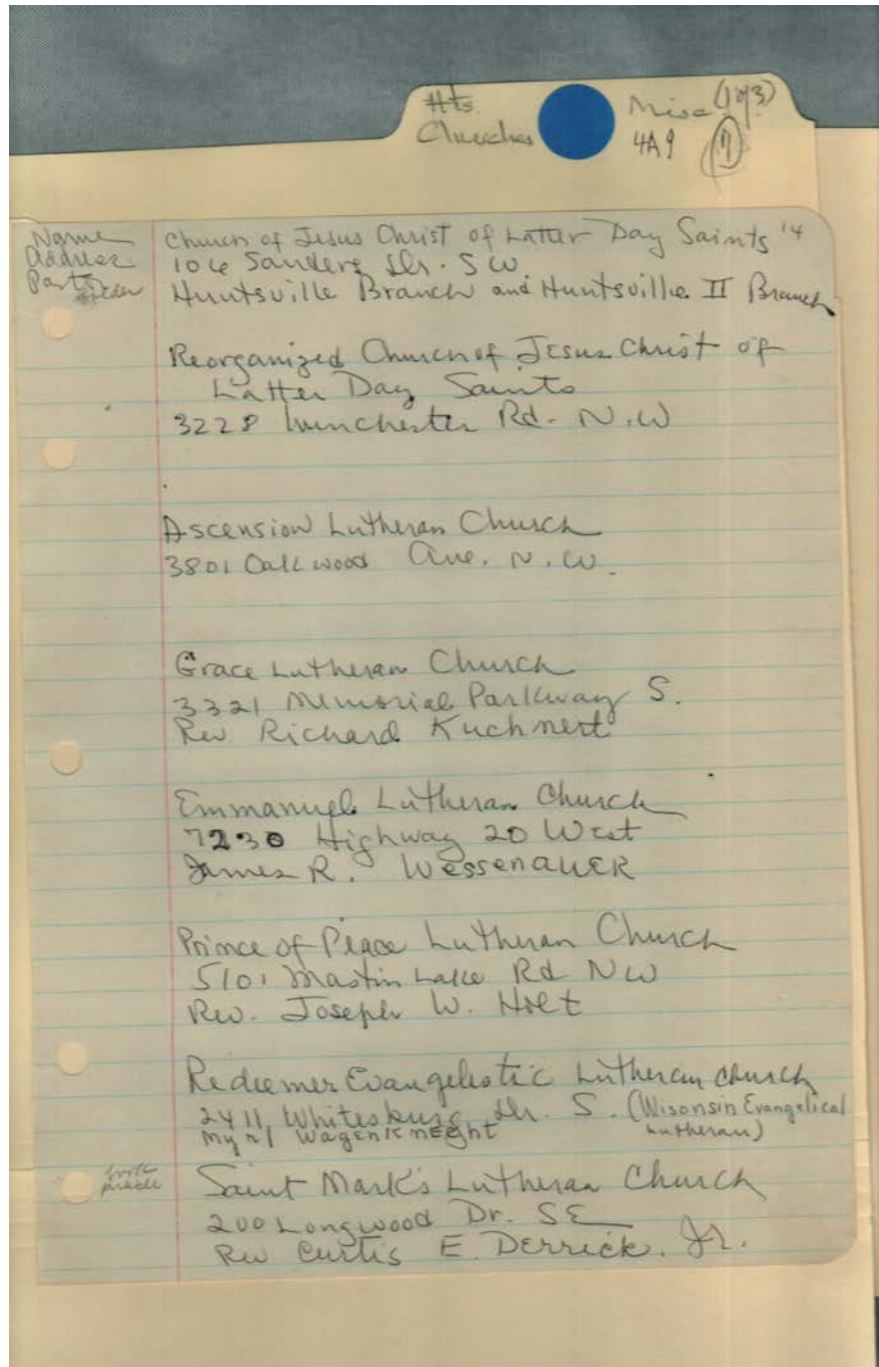 Hts. Churches
Misc (1 of 3)
4A9
Name
Address
Pastor
Church of Jesus Christ of Latter Day Saints 14
106 Sanders Dr. SW
Huntsville Branch and Huntsville II Branch
Reorganized Church of Jesus Christ of
Latter Day Saints
3228 Winchester Rd. N.W
Ascension Lutheran Church
3801 Oakwood Ave. N.W.
Grace Lutheran Church
3321 Memorial Parkway S.
Rev Richard Kuchnert
Emmanuel Lutheran Church
7230 Highway 20 West
James R. Wessenauer
Prince of Peace Lutheran Church
5101 Mastin Lake Rd NW
Rev. Joseph W. Holt
Redeemer Evangelistic Lutheran Church
2411 Whitesburg Dr. S. (Wisonsin Evangelical
Lutheran)
Wagenknecht
Saint Mark's Lutheran Church
200 Longwood Dr. SE
Rev Curtis E. Derrick. Jr.